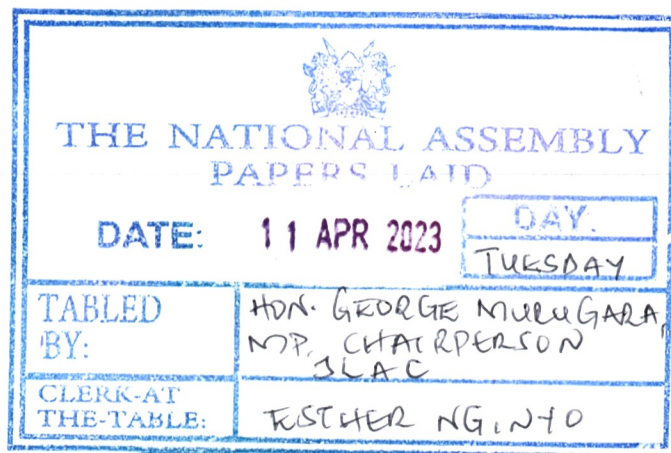 THE NATIONAL ASSEMBLY
PAPERS LAID
DATE: 11 APR 2023
DAY.
TUESDAY
TABLED BY:
HON. GEORGE MURUGARA,
MP, CHAIRPERSON
JLAC
CLERK-AT THE-TABLE:
ESTHER NGINYO